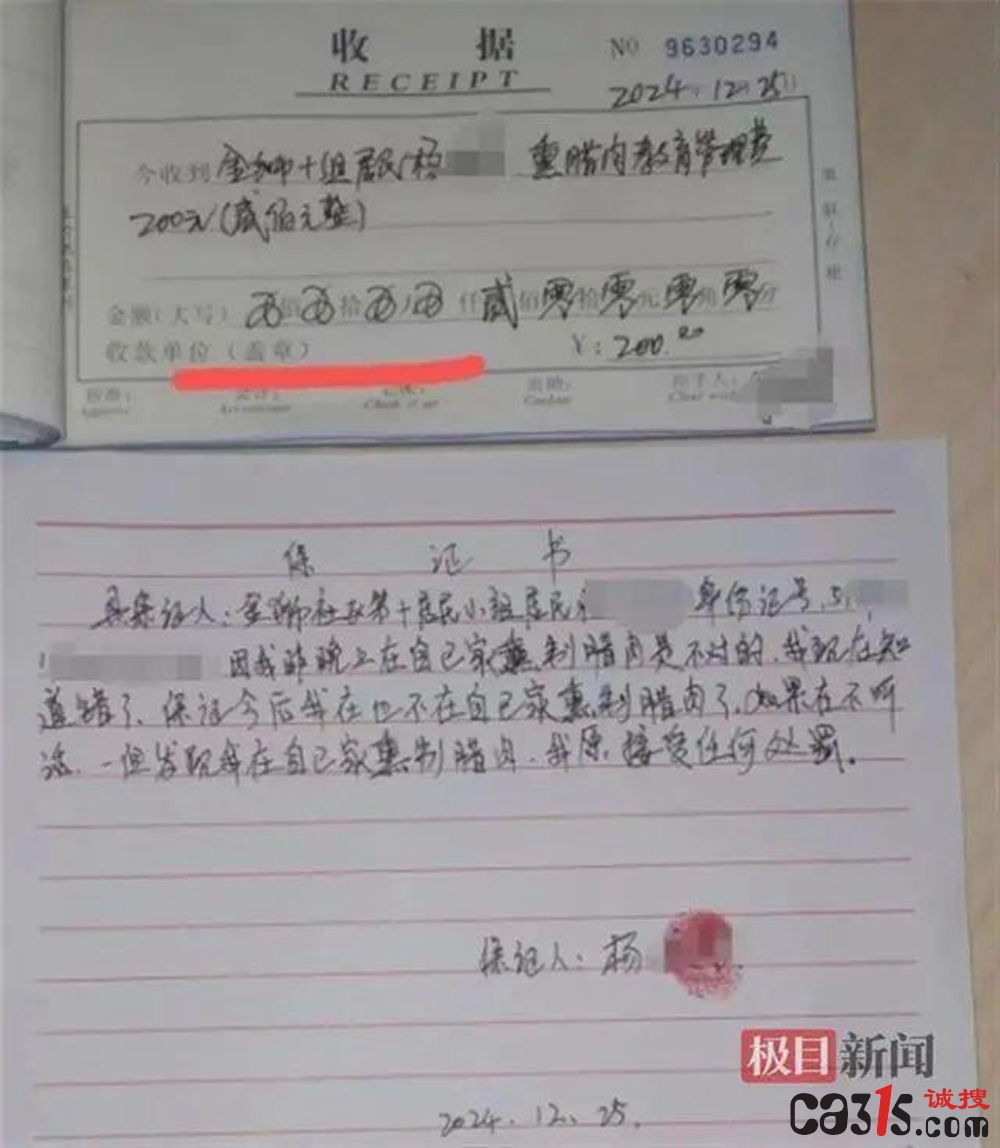 收 据
RECEIPT
NO 9630294
2024.12.25
今收到 金狮十组居民杨 熏腊肉教育管理费
200元(贰佰元整)
金额(大写) 佰 拾 万 仟 贰 佰 零 拾 零 元 零 角 零 分
收款单位(盖章) ¥:200.00
保 证 书
具保证人:金狮社区第十居民小组居民 身份证号:51
因我昨晚上在自己家熏制腊肉是不对的,我现在知
道错了、保证今后我在也不在自己家熏制腊肉了,如果在不听
话,一但发现我在自己家熏制腊肉,我原接受任何处罚。
保证人:杨
2024.12.25.
极目新闻
诚搜
ca315.com